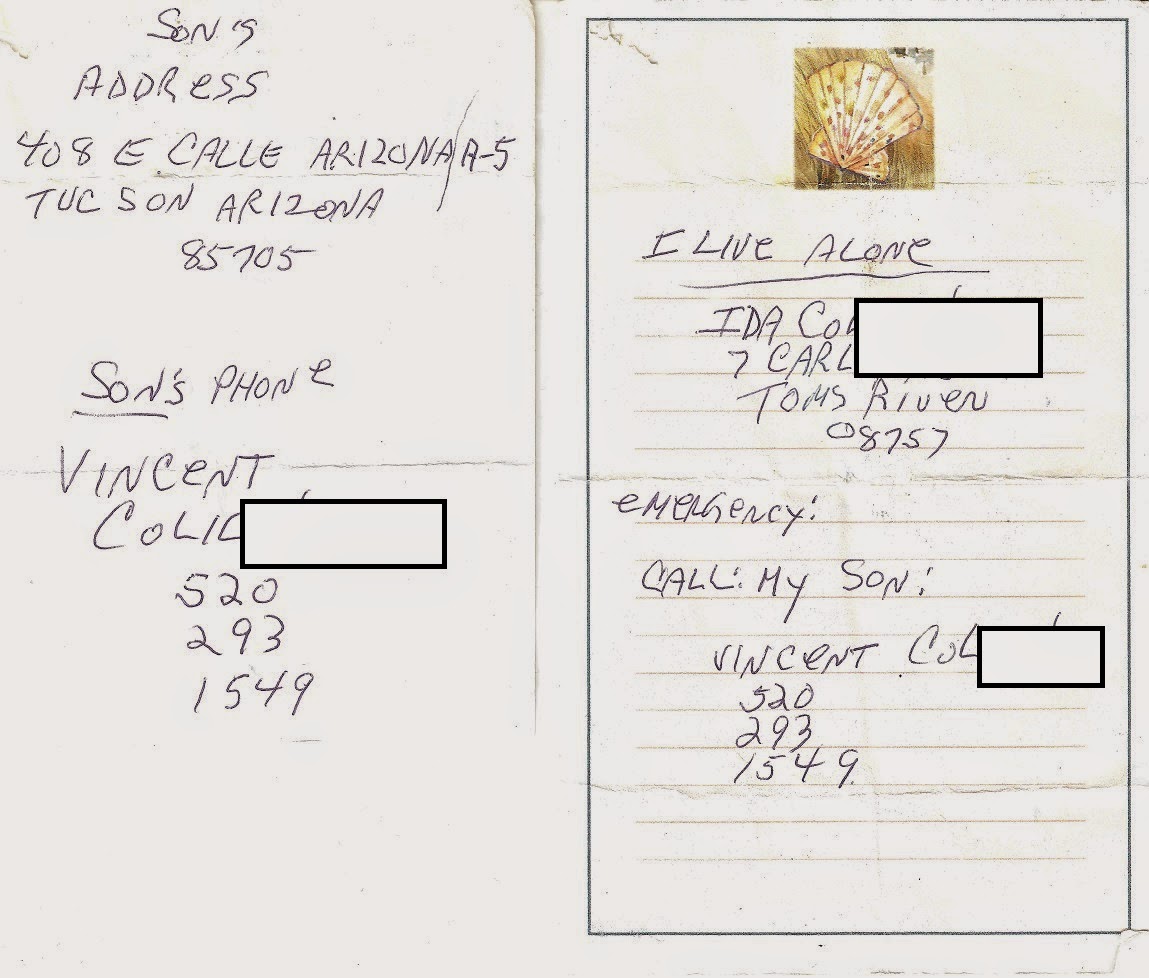 SON'S
ADDRESS
408 E CALLE ARIZONA/A-5
TUCSON ARIZONA
85705
SON'S PHONE
VINCENT
COLI
520
293
1549
I LIVE ALONE
IDA COL
7 CARL
TOMS RIVER
08757
EMERGENCY:
CALL: MY SON:
VINCENT COL
520
293
1549